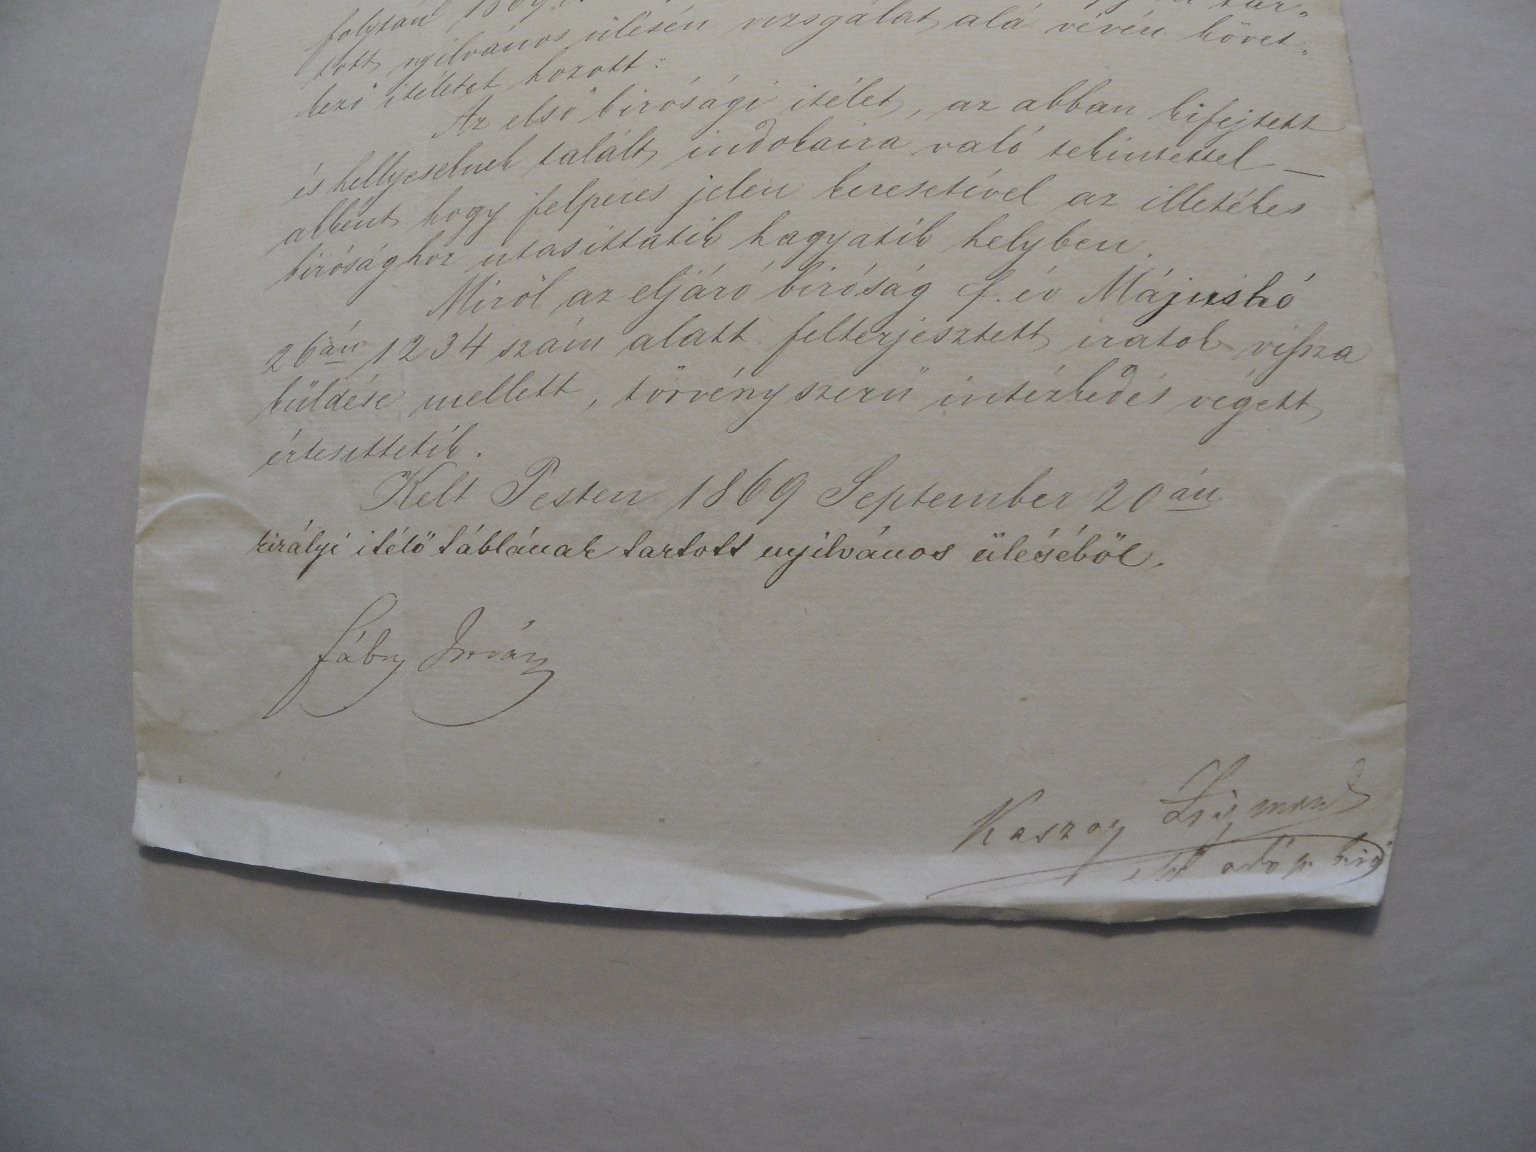 folytán 1869
tott nyilvános ülésén vizsgálat alá vévén követ-
kező itéletet hozott:
Az első birósági itélet, az abban kifejtett
és hellyeseknek talált indokaira való tekintettel –
akként hogy felperes jelen keresetével az illetékes
birósághoz utasittatik hagyatik helyben.
Miről az eljáró biróság f. év Májushó
26án 1234 szám alatt felterjesztett iratok vissza
küldése mellett, törvényszerü intézkedés végett
értesittetik.
Kelt Pesten 1869 September 20án
királyi itélő táblának tartott nyilvános üléséből.
Fábry István
Kaszay Zsigmond